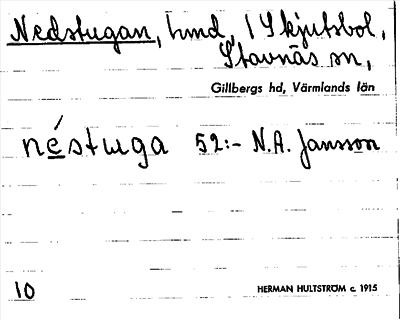 Nedstugan, hmd, i Skjutsbol,
Stavnäs sn,
Gillbergs hd, Värmlands län
néstuga 52:- N.A. Jansson
10 HERMAN HULTSTRÖM c. 1915